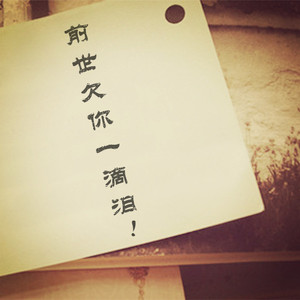 前世欠你一滴泪！